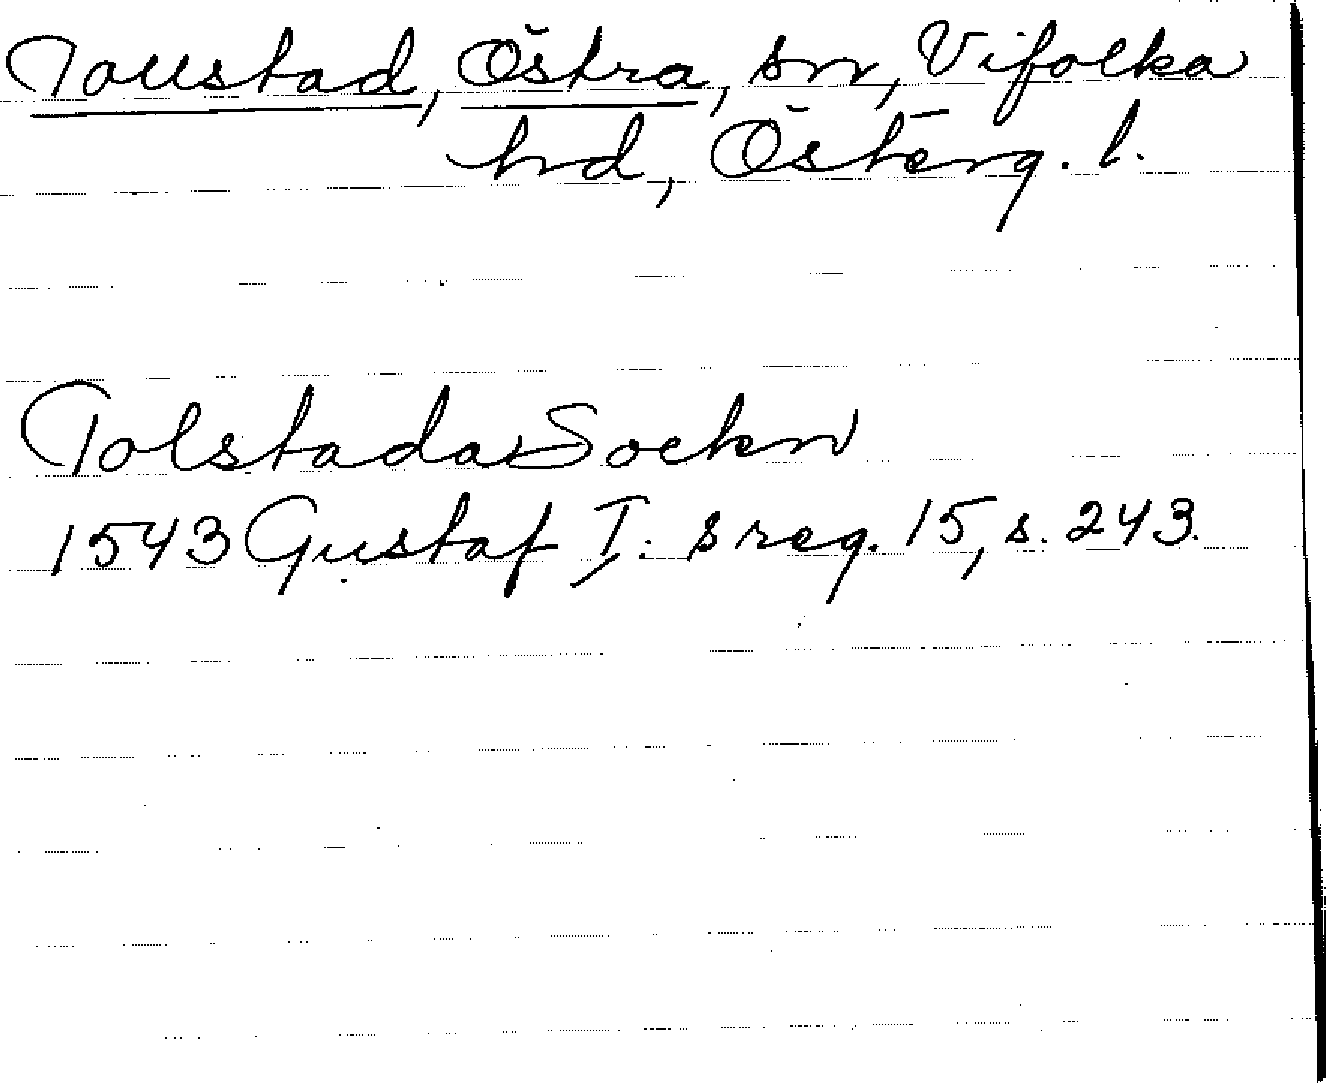 Tollstad, Östra, sn, Vifolka
hrd, Österg. l.
Tolstada Sockn
1543 Gustaf I:s reg. 15, s. 243.